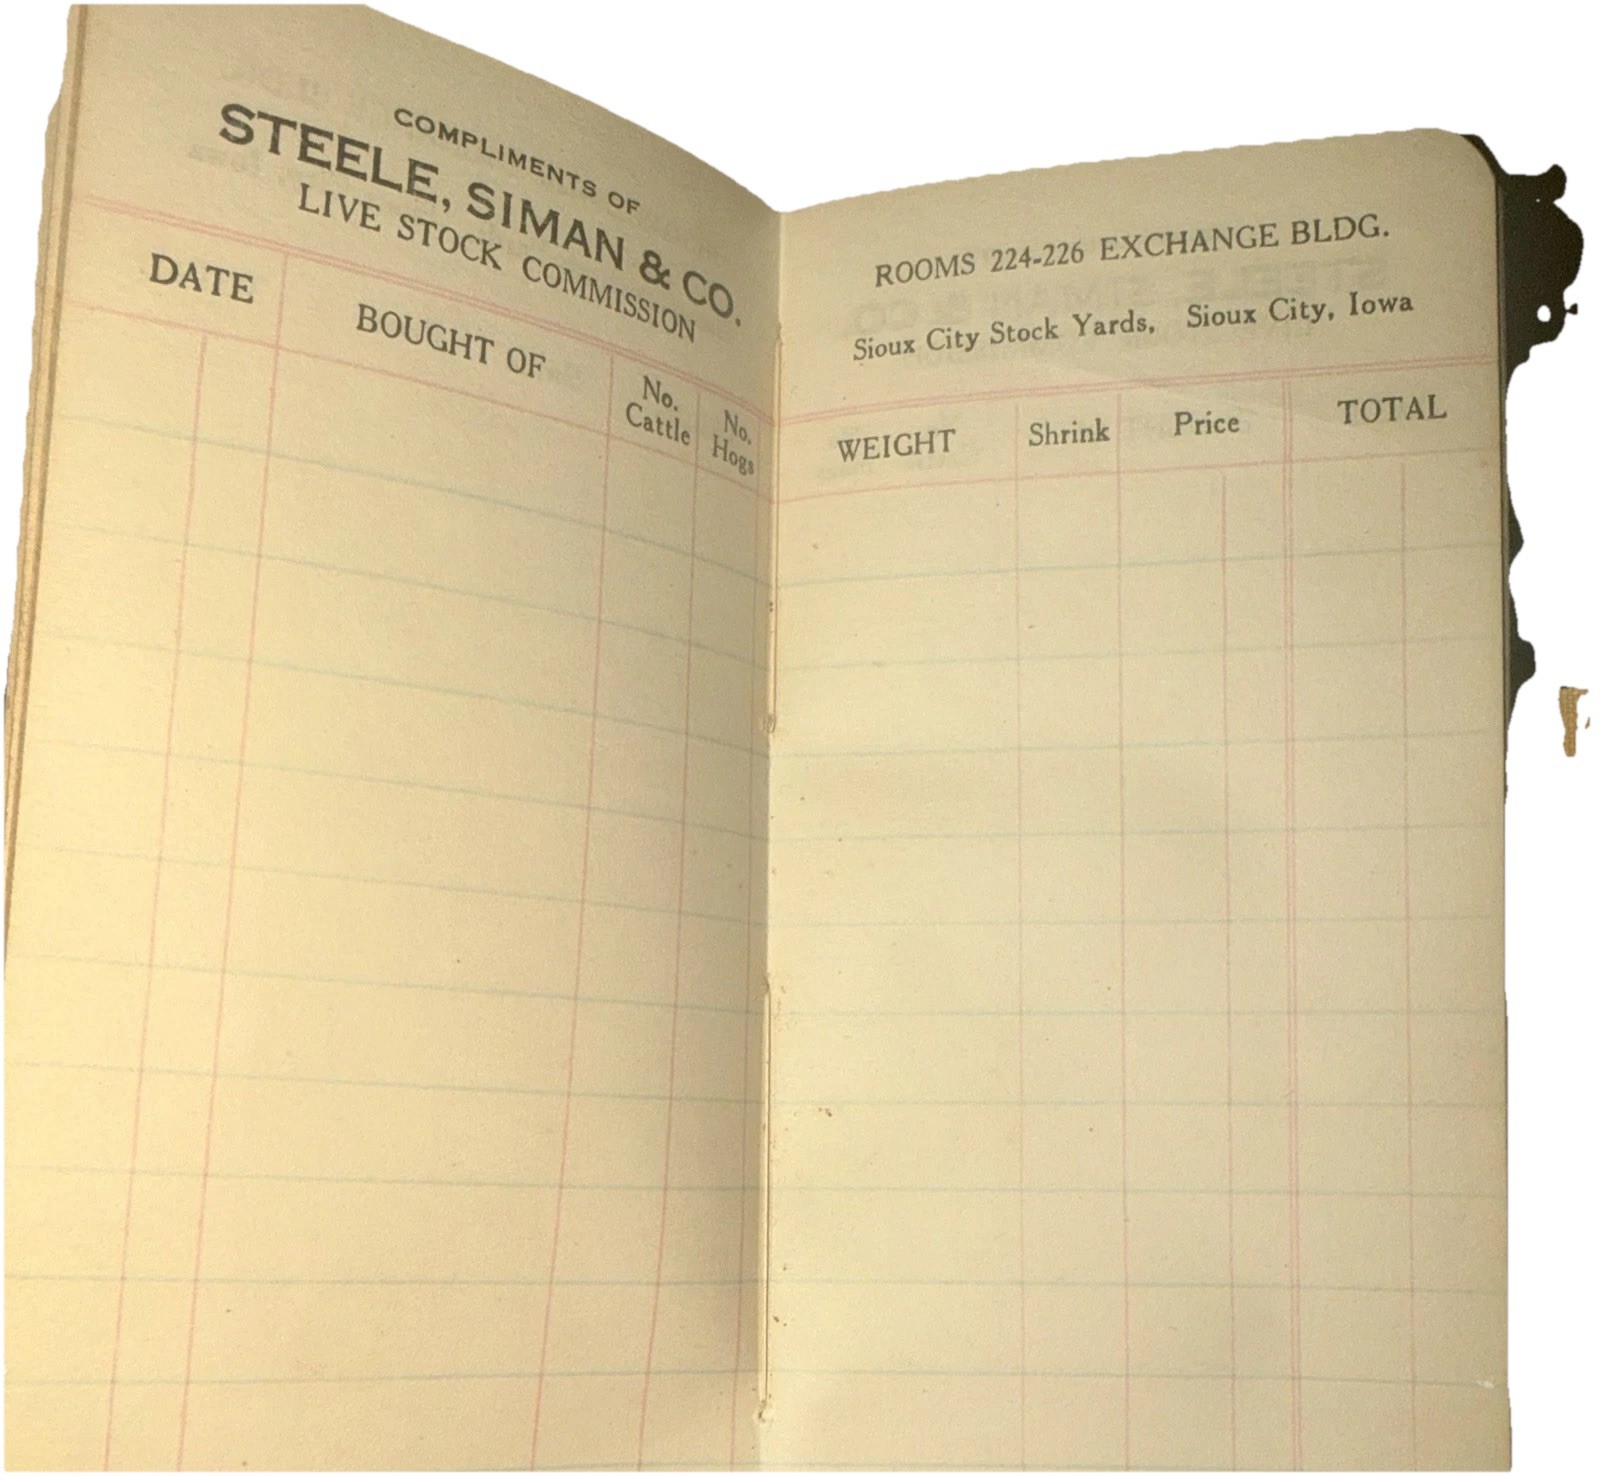 COMPLIMENTS OF
STEELE, SIMAN & CO.
LIVE STOCK COMMISSION
DATE
BOUGHT OF
No. Cattle
No. Hogs
ROOMS 224-226 EXCHANGE BLDG.
Sioux City Stock Yards, Sioux City, Iowa
WEIGHT
Shrink
Price
TOTAL